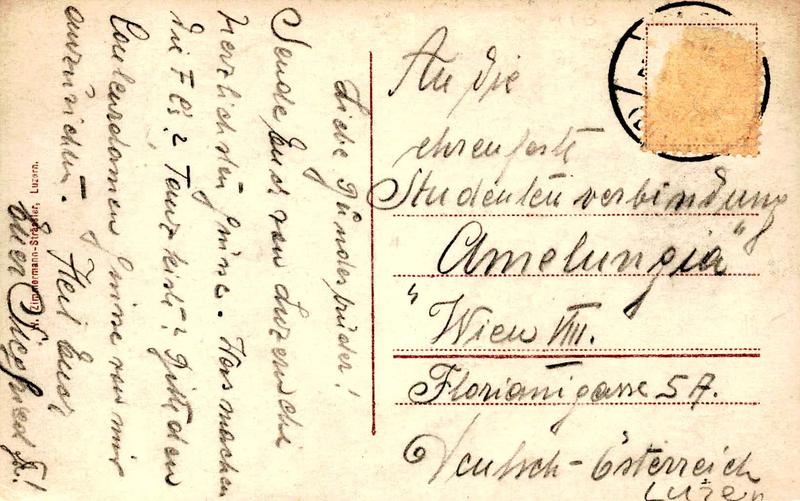 Liebe Bundesbrüder!
Sende Euch von Luzern die
herzlichsten Grüsse. Was machen
die Fls? Tanzkist? Bitte den
Couleurdamen Grüsse von mir
auszurichten. Heil Euch
Euer Siegfried
N. Zimmermann-Strässler, Luzern.
An die
ehrenfeste
Studentenverbindung
„Amelungia"
Wien VIII.
Florianigasse 5A.
Deutsch-Österreich
Luzern